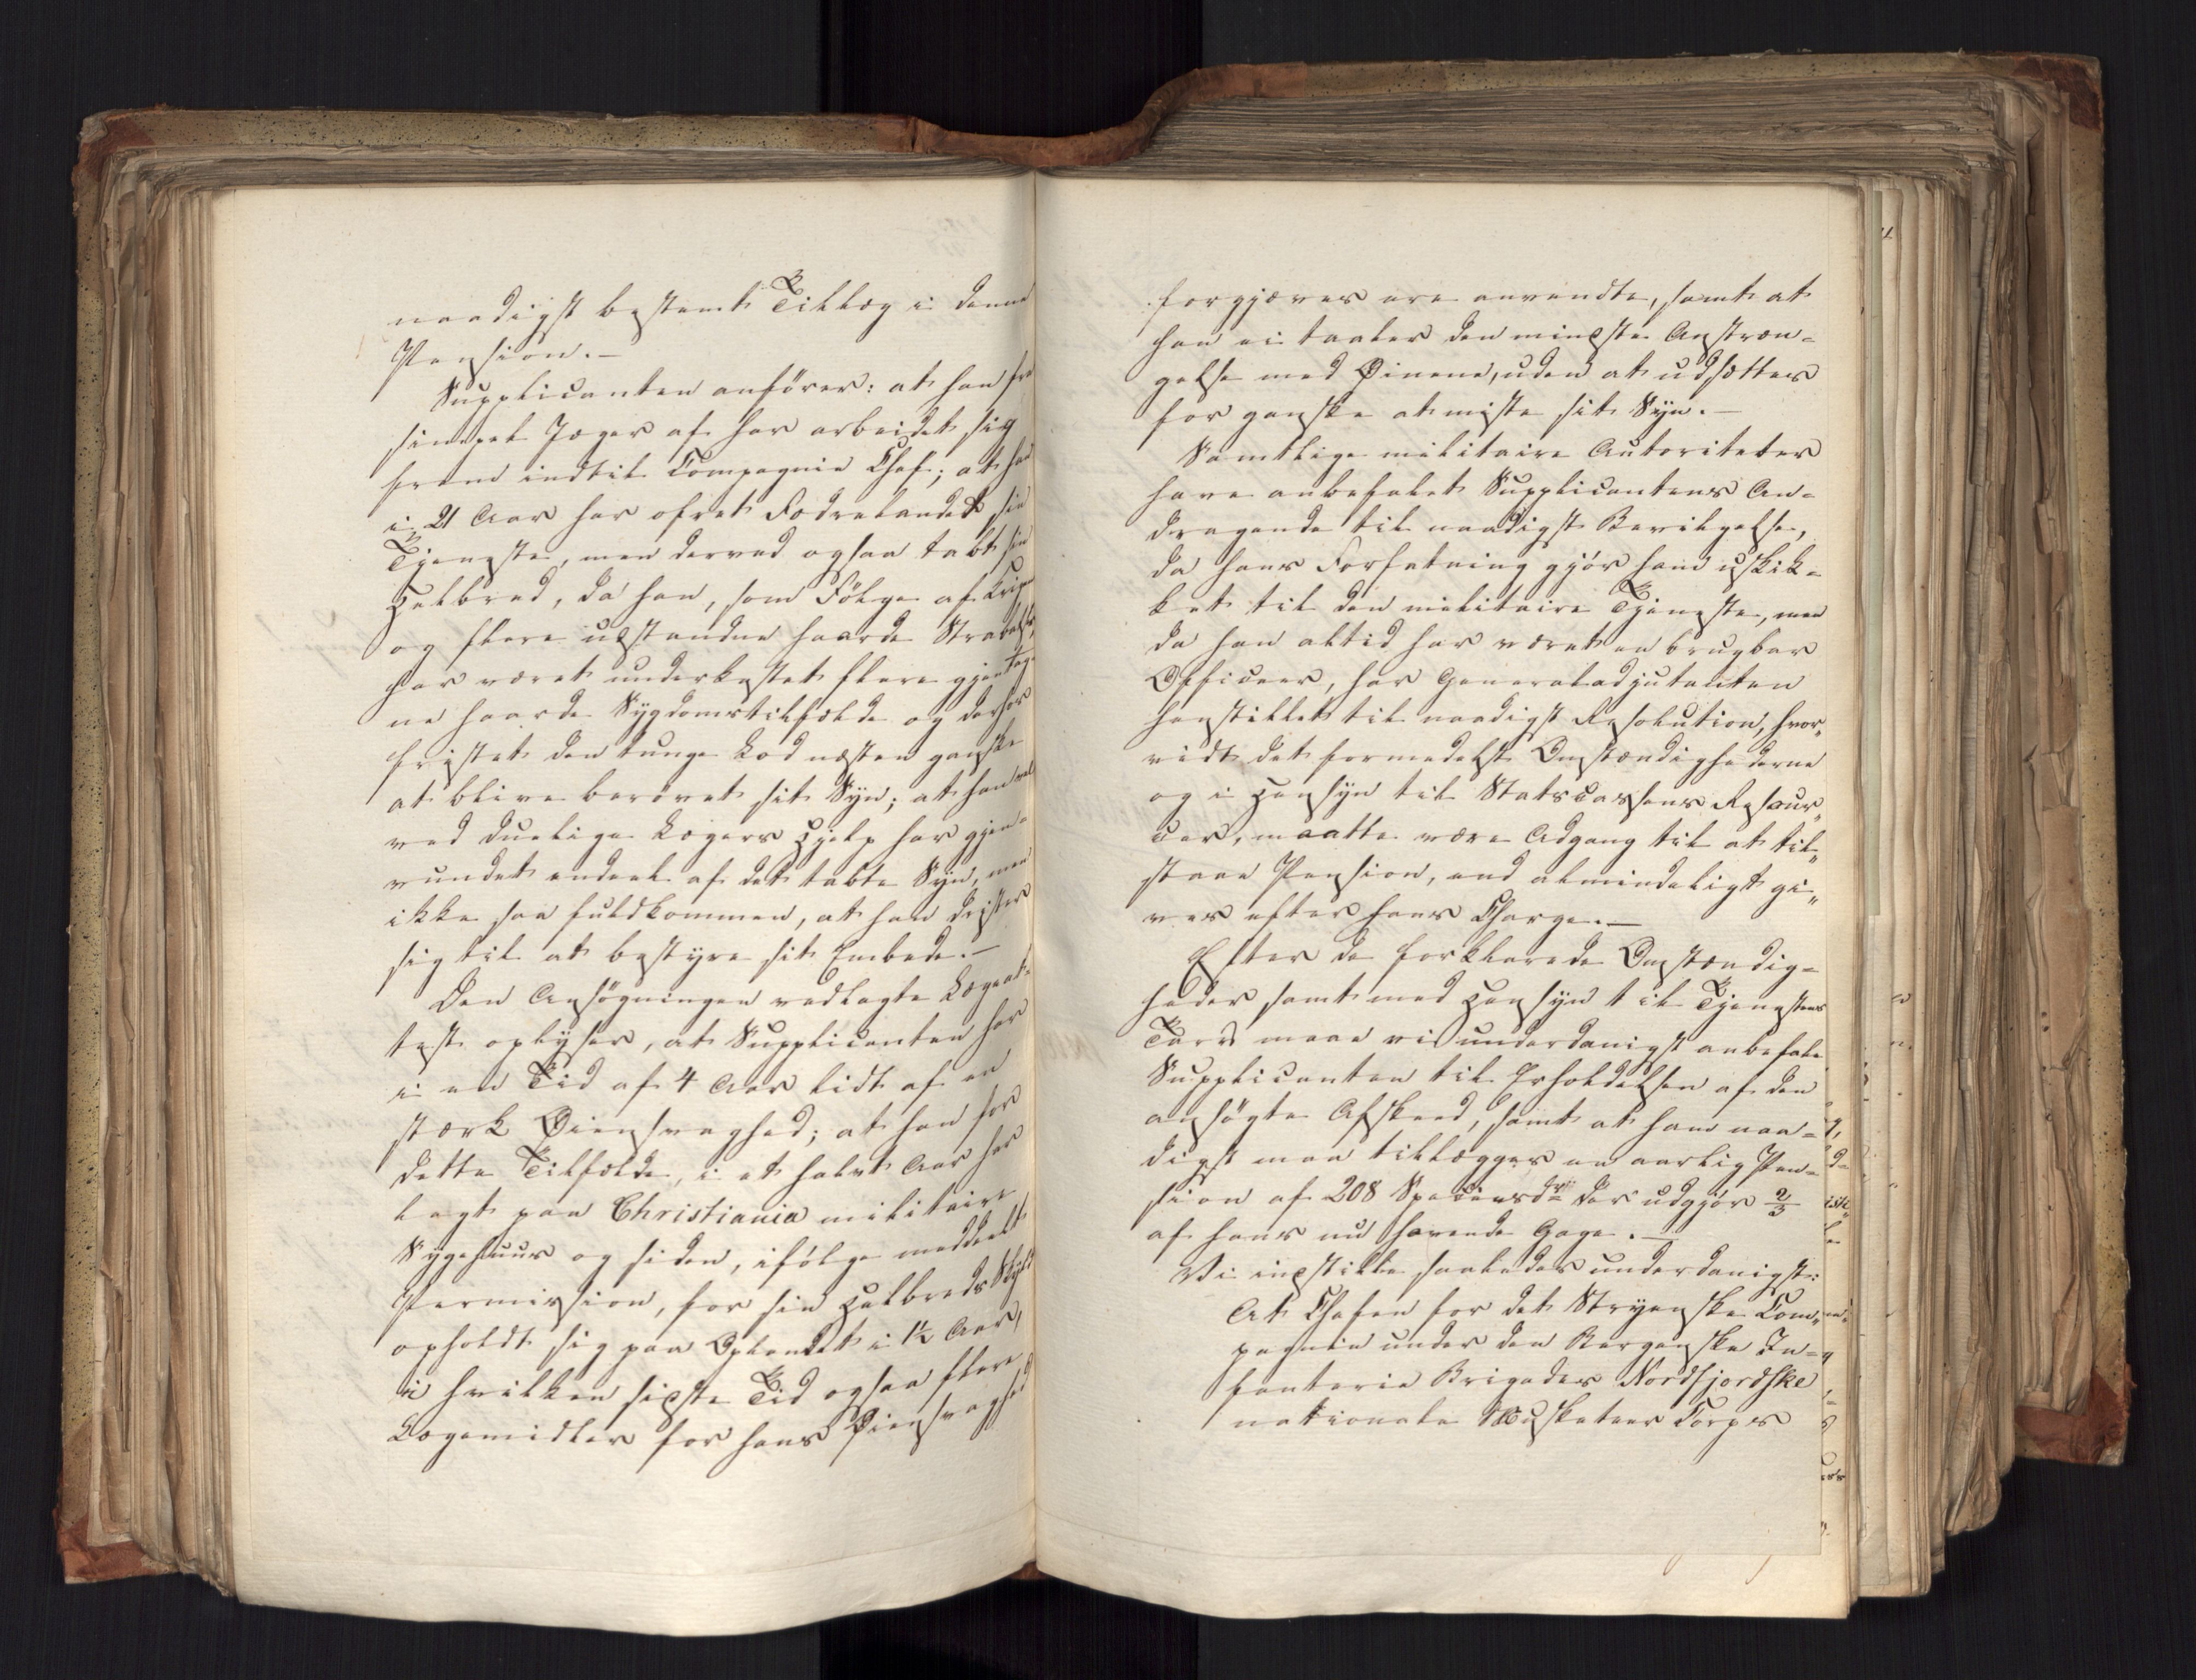 naadigst bestemt Tillæg i denne
Pension.—
Supplicanten anfører: at han fra
simpel Jæger af har arbeidet sig
frem indtil Compagnie Chef; at han
i 21 Aar har ofret Fædrelandet sin
Tjeneste, men derved ogsaa tabt sin
Helbred, da han, som Følge af Krigen
og flere udstandne haarde Strabatser,
har været underkastet flere gjentag-
ne haarde Sygdomstilfælde og derfor
fristet den tunge Lod næsten ganske
at blive berøvet sit Syn; at han vel
ved duelige Lægers Hjelp har gjen-
vundet endeel af det tabte Syn, men
ikke saa fuldkommen, at han drister
sig til at bestyre sit Embede.—
Den Ansøgningen vedlagte Lægeat-
test oplyser, at Supplicanten har
i en Tid af 4 Aar lidt af en
stærk Øiensvaghed; at han for
dette Tilfælde, i et halvt Aar har
lagt paa Christiania militaire
Sygehuus og siden, ifølge meddeelt
Permission, for sin Helbreds Skyld
opholdt sig paa Oplandet i 1½ Aar,
i hvilken sidste Tid ogsaa flere
Lægemidler for hans Øiensvaghed
forgjæves ere anvendte, samt at
han ei taaler den mindste Anstræn-
gelse med Øinene, uden at udsættes
for ganske at miste sit Syn.—
Samtlige militaire Autoriteter
have anbefalet Supplicantens An-
dragende til naadigst Bevilgelse,
da hans Forfatning gjør ham uskik-
ket til den militaire Tjeneste, men
da han altid har været en brugbar
Officeer, har Generaladjutanten
henstillet til naadigst Resolution, hvor„
vidt det formedelst Omstændighederne
og i Hensyn til Statscassens Resour„
cer, maatte være Adgang til at til„
staae Pension, end almindeligt gi„
ves efter hans Charge.—
Efter de forklarede Omstændig-
heder samt med Hensyn til Tjenestens
Tarv maae vi underdanigst anbefale
Supplicanten til Erholdelsen af den
ansøgte Afskeed, samt at ham naa-
digst maa tillægges en aarlig Pen-
sion af 208 Speciesdr. der udgjør ⅔
af hans nu havende Gage.—
Vi indstille saaledes underdanigst:
At Chefen for det Stryenske Com„
pagnie under den Bergenske In-
fanterie Brigades Nordfjordske
nationale Musketeer Corps